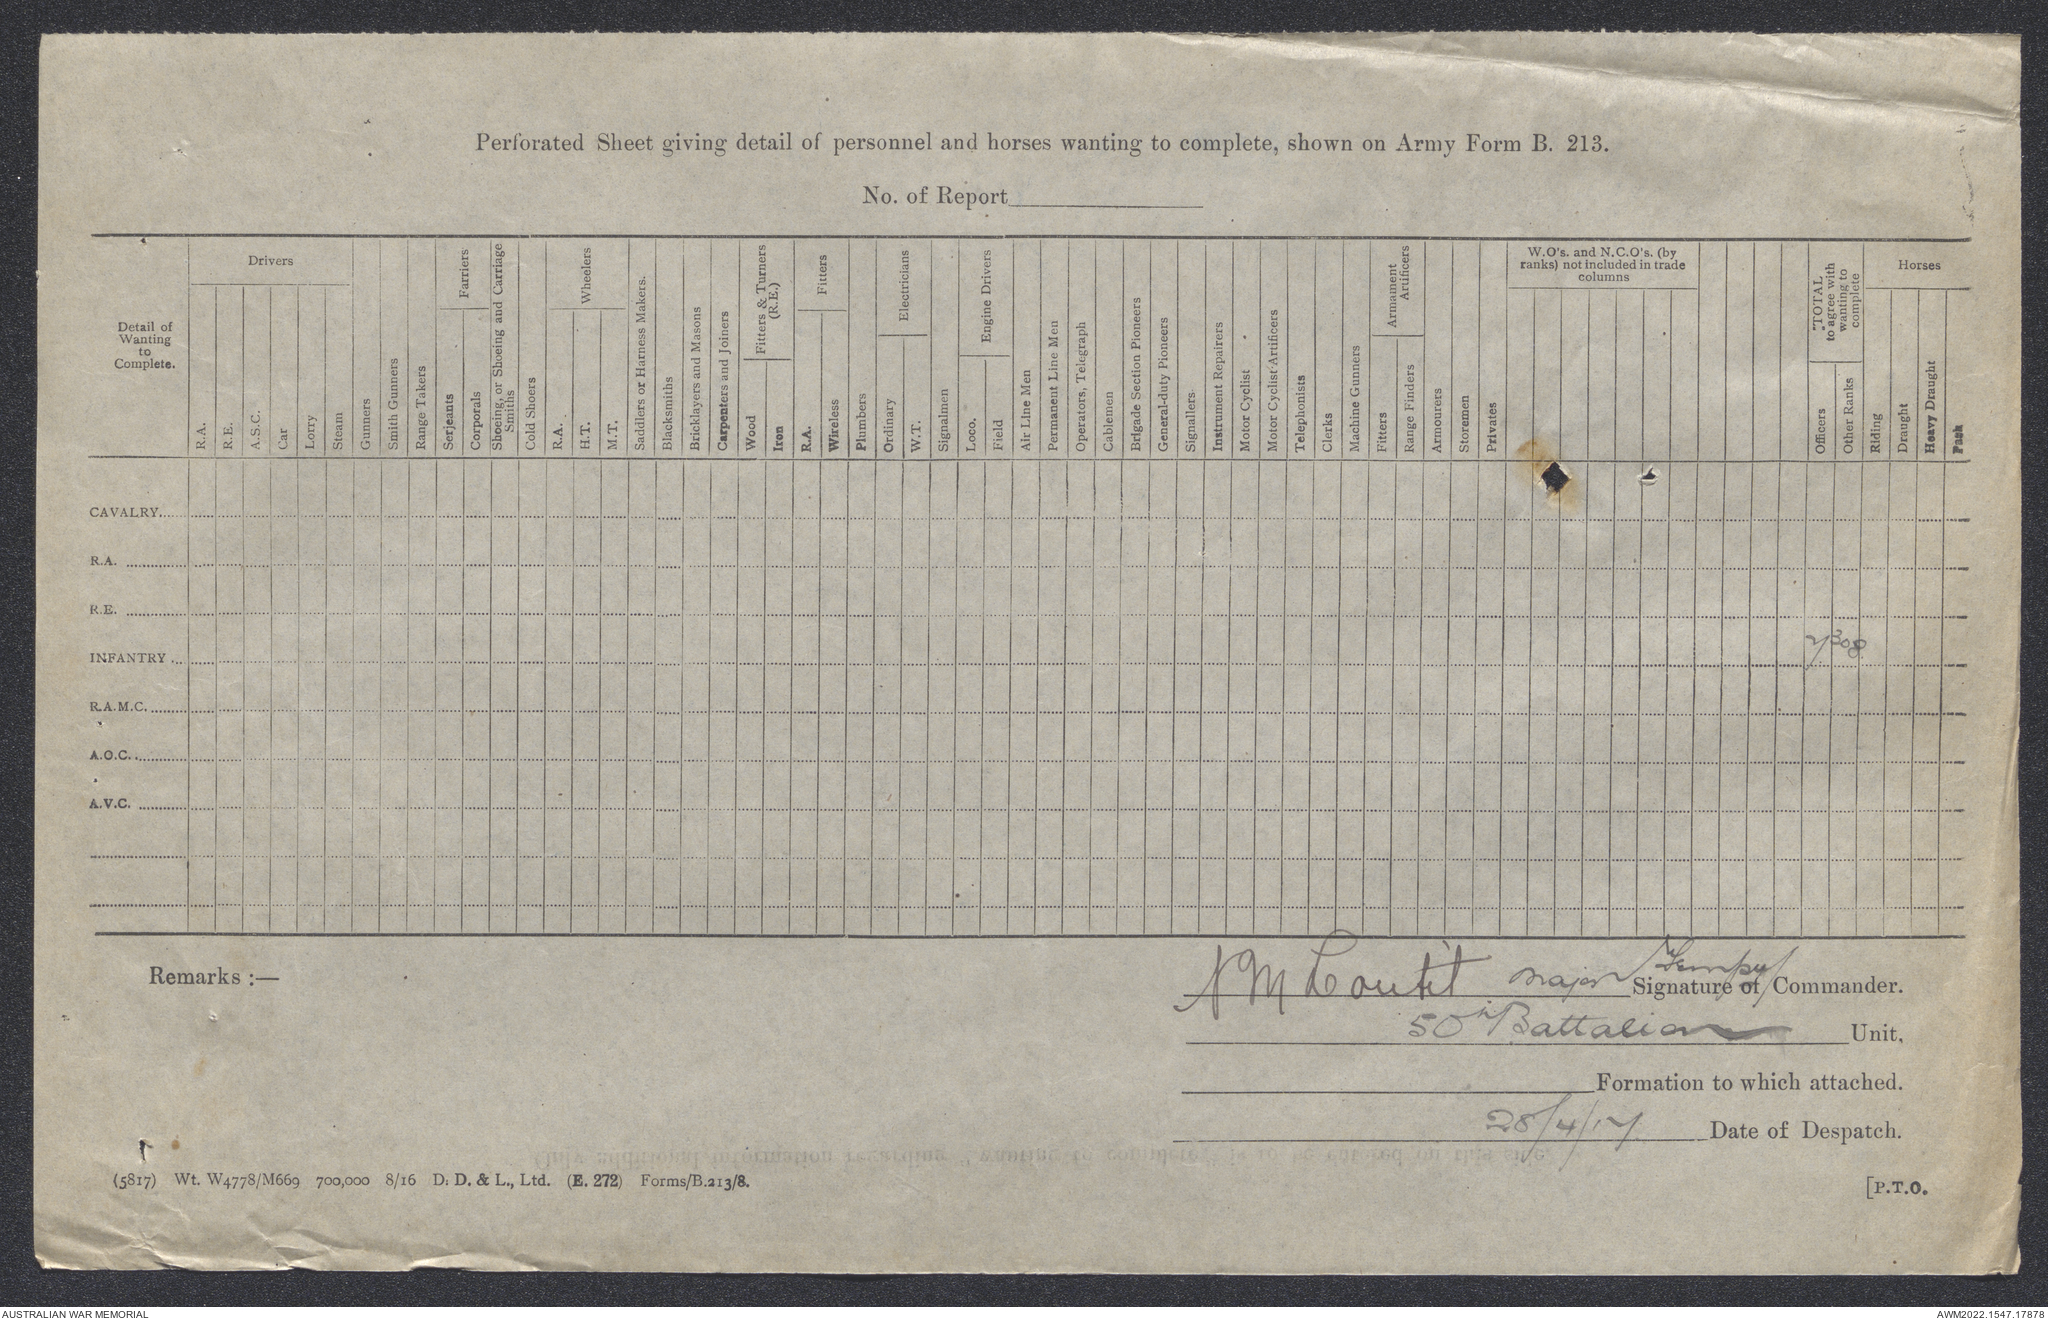 Perforated Sheet giving detail of personnel and horses wanting to complete, shown on Army Form B. 213.
No. of Report
Detail of
Wanting
to
Complete.
Drivers
R.A.
R.E.
A.S.C.
Car
Lorry
Steam
Gunners
Smith Gunners
Range Takers
Farriers
Serjeants
Corporals
Shoeing, or Shoeing and Carriage
Smiths
Cold Shoers
Wheelers
R.A.
H.T.
M.T.
Saddlers or Harness Makers.
Blacksmiths
Bricklayers and Masons
Carpenters and Joiners
Fitters & Turners
(R.E.)
Wood
Iron
Fitters
R.A.
Wireless
Plumbers
Electricians
Ordinary
W.T.
Signalmen
Engine Drivers
Loco.
Field
Air Line Men
Permanent Line Men
Operators, Telegraph
Cablemen
Brigade Section Pioneers
General-duty Pioneers
Signallers
Instrument Repairers
Motor Cyclist
Motor Cyclist Artificers
Telephonists
Clerks
Machine Gunners
Armament
Artificers
Fitters
Range Finders
Armourers
Storemen
Privates
W.O's. and N.C.O's. (by
ranks) not included in trade
columns
TOTAL
to agree with
wanting to
complete
Officers
Other Ranks
Horses
Riding
Draught
Heavy Draught
Pack
CAVALRY
R.A.
R.E.
INFANTRY 308
R.A.M.C.
A.O.C.
A.V.C.
Remarks :—
N M Loutit Major Tempy Signature of Commander.
50th Battalion Unit,
Formation to which attached.
28/4/17 Date of Despatch.
(5817) Wt. W4778/M669 700,000 8/16 D. D. & L., Ltd. (E. 272) Forms/B.213/8.
[P.T.O.
AUSTRALIAN WAR MEMORIAL
AWM2022.1547.17878